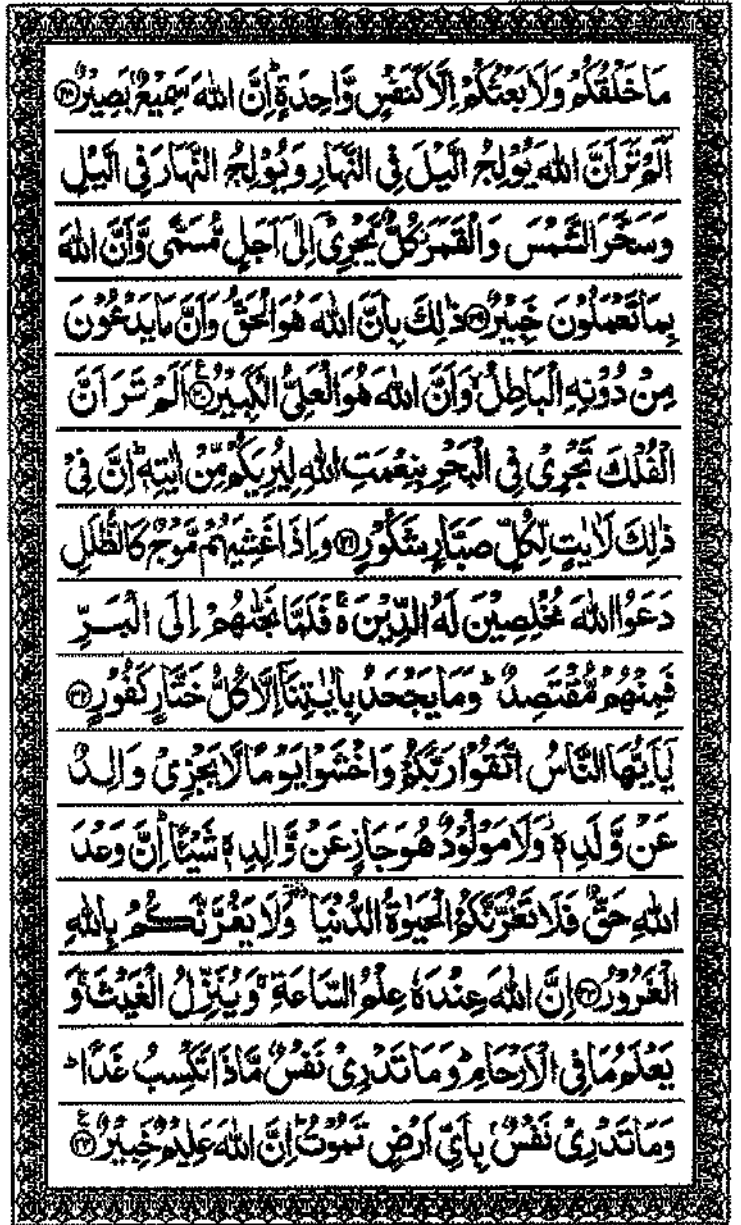 مَا خَلْقُكُمْ وَلَا بَعْثُكُمْ اِلَّا كَنَفْسٍ وَّاحِدَةٍ ؕ اِنَّ اللّٰهَ سَمِيْعٌۢ بَصِيْرٌ ﴿۲۸﴾
اَلَمْ تَرَ اَنَّ اللّٰهَ يُوْلِجُ الَّيْلَ فِى النَّهَارِ وَيُوْلِجُ النَّهَارَ فِى الَّيْلِ
وَسَخَّرَ الشَّمْسَ وَالْقَمَرَ ؗ كُلٌّ يَّجْرِىْۤ اِلٰٓى اَجَلٍ مُّسَمًّى وَّاَنَّ اللّٰهَ
بِمَا تَعْمَلُوْنَ خَبِيْرٌ ﴿۲۹﴾ ذٰلِكَ بِاَنَّ اللّٰهَ هُوَ الْحَقُّ وَاَنَّ مَا يَدْعُوْنَ
مِنْ دُوْنِهِ الْبَاطِلُ ۙ وَاَنَّ اللّٰهَ هُوَ الْعَلِىُّ الْكَبِيْرُ ﴿۳۰﴾ ع اَلَمْ تَرَ اَنَّ
الْفُلْكَ تَجْرِىْ فِى الْبَحْرِ بِنِعْمَتِ اللّٰهِ لِيُرِيَكُمْ مِّنْ اٰيٰتِهٖ ؕ اِنَّ فِىْ
ذٰلِكَ لَاٰيٰتٍ لِّكُلِّ صَبَّارٍ شَكُوْرٍ ﴿۳۱﴾ وَاِذَا غَشِيَهُمْ مَّوْجٌ كَالظُّلَلِ
دَعَوُا اللّٰهَ مُخْلِصِيْنَ لَهُ الدِّيْنَ ۚ فَلَمَّا نَجّٰهُمْ اِلَى الْبَرِّ
فَمِنْهُمْ مُّقْتَصِدٌ ؕ وَمَا يَجْحَدُ بِاٰيٰتِنَاۤ اِلَّا كُلُّ خَتَّارٍ كَفُوْرٍ ﴿۳۲﴾
يٰۤاَيُّهَا النَّاسُ اتَّقُوْا رَبَّكُمْ وَاخْشَوْا يَوْمًا لَّا يَجْزِىْ وَالِدٌ
عَنْ وَّلَدِهٖ ؗ وَلَا مَوْلُوْدٌ هُوَ جَازٍ عَنْ وَّالِدِهٖ شَيْـًٔا ؕ اِنَّ وَعْدَ
اللّٰهِ حَقٌّ فَلَا تَغُرَّنَّكُمُ الْحَيٰوةُ الدُّنْيَا ٙ وَلَا يَغُرَّنَّكُمْ بِاللّٰهِ
الْغَرُوْرُ ﴿۳۳﴾ اِنَّ اللّٰهَ عِنْدَهٗ عِلْمُ السَّاعَةِ ۚ وَيُنَزِّلُ الْغَيْثَ ۚ وَ
يَعْلَمُ مَا فِى الْاَرْحَامِ ؕ وَمَا تَدْرِىْ نَفْسٌ مَّاذَا تَكْسِبُ غَدًا ؕ
وَمَا تَدْرِىْ نَفْسٌۢ بِاَىِّ اَرْضٍ تَمُوْتُ ؕ اِنَّ اللّٰهَ عَلِيْمٌ خَبِيْرٌ ﴿۳۴﴾ ع